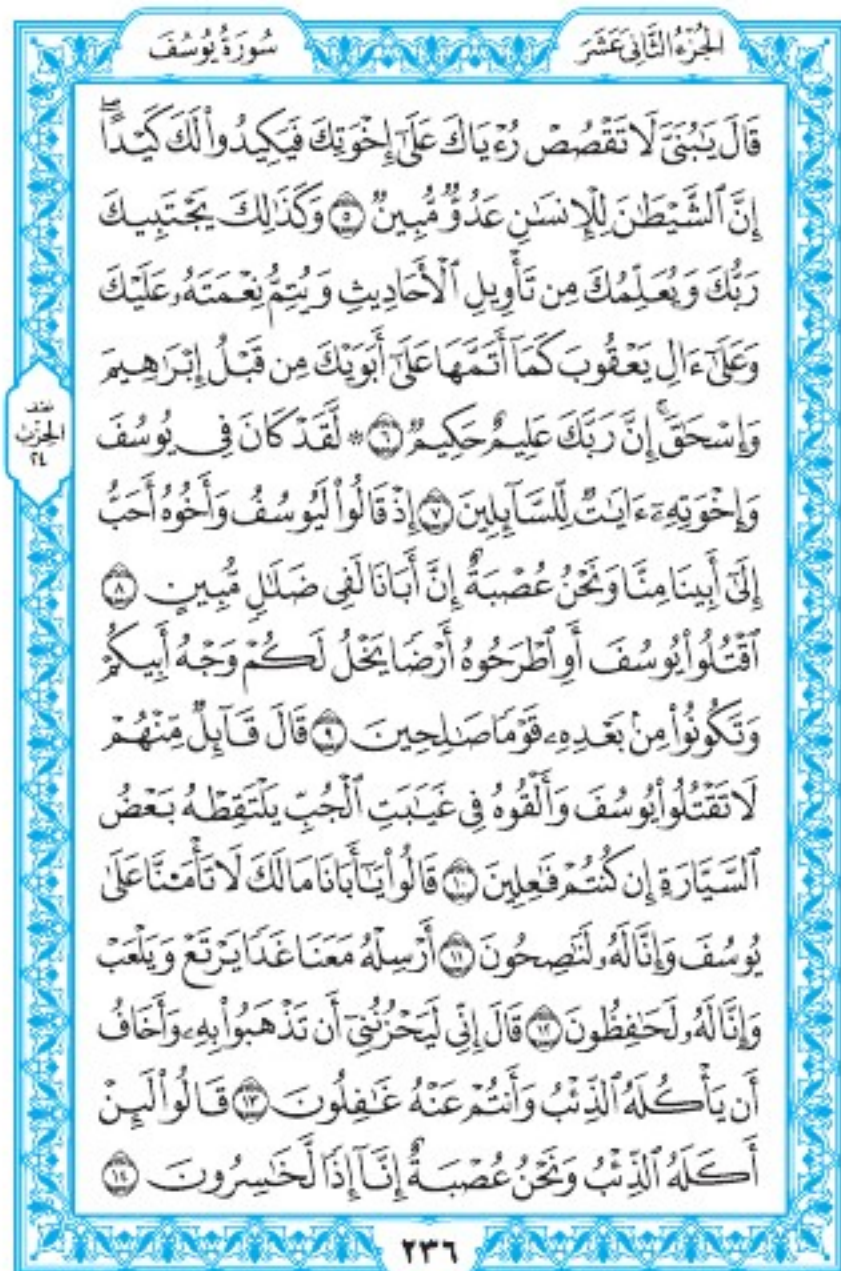 الجُزْءُ الثَّانِي عَشَرَ
سُورَةُ يُوسُفَ
قَالَ يَٰبُنَىَّ لَا تَقْصُصْ رُءْيَاكَ عَلَىٰٓ إِخْوَتِكَ فَيَكِيدُوا۟ لَكَ كَيْدًاۖ
إِنَّ ٱلشَّيْطَٰنَ لِلْإِنسَٰنِ عَدُوٌّ مُّبِينٌ ۝٥ وَكَذَٰلِكَ يَجْتَبِيكَ
رَبُّكَ وَيُعَلِّمُكَ مِن تَأْوِيلِ ٱلْأَحَادِيثِ وَيُتِمُّ نِعْمَتَهُۥ عَلَيْكَ
وَعَلَىٰٓ ءَالِ يَعْقُوبَ كَمَآ أَتَمَّهَا عَلَىٰٓ أَبَوَيْكَ مِن قَبْلُ إِبْرَٰهِيمَ
وَإِسْحَٰقَۚ إِنَّ رَبَّكَ عَلِيمٌ حَكِيمٌ ۝٦ * لَّقَدْ كَانَ فِى يُوسُفَ
وَإِخْوَتِهِۦٓ ءَايَٰتٌ لِّلسَّآئِلِينَ ۝٧ إِذْ قَالُوا۟ لَيُوسُفُ وَأَخُوهُ أَحَبُّ
إِلَىٰٓ أَبِينَا مِنَّا وَنَحْنُ عُصْبَةٌ إِنَّ أَبَانَا لَفِى ضَلَٰلٍ مُّبِينٍ ۝٨
ٱقْتُلُوا۟ يُوسُفَ أَوِ ٱطْرَحُوهُ أَرْضًا يَخْلُ لَكُمْ وَجْهُ أَبِيكُمْ
وَتَكُونُوا۟ مِنۢ بَعْدِهِۦ قَوْمًا صَٰلِحِينَ ۝٩ قَالَ قَآئِلٌ مِّنْهُمْ
لَا تَقْتُلُوا۟ يُوسُفَ وَأَلْقُوهُ فِى غَيَٰبَتِ ٱلْجُبِّ يَلْتَقِطْهُ بَعْضُ
ٱلسَّيَّارَةِ إِن كُنتُمْ فَٰعِلِينَ ۝١٠ قَالُوا۟ يَٰٓأَبَانَا مَالَكَ لَا تَأْمَ۫نَّا عَلَىٰ
يُوسُفَ وَإِنَّا لَهُۥ لَنَٰصِحُونَ ۝١١ أَرْسِلْهُ مَعَنَا غَدًا يَرْتَعْ وَيَلْعَبْ
وَإِنَّا لَهُۥ لَحَٰفِظُونَ ۝١٢ قَالَ إِنِّى لَيَحْزُنُنِىٓ أَن تَذْهَبُوا۟ بِهِۦ وَأَخَافُ
أَن يَأْكُلَهُ ٱلذِّئْبُ وَأَنتُمْ عَنْهُ غَٰفِلُونَ ۝١٣ قَالُوا۟ لَئِنْ
أَكَلَهُ ٱلذِّئْبُ وَنَحْنُ عُصْبَةٌ إِنَّآ إِذًا لَّخَٰسِرُونَ ۝١٤
نصف
الحزب
٢٤
٢٣٦